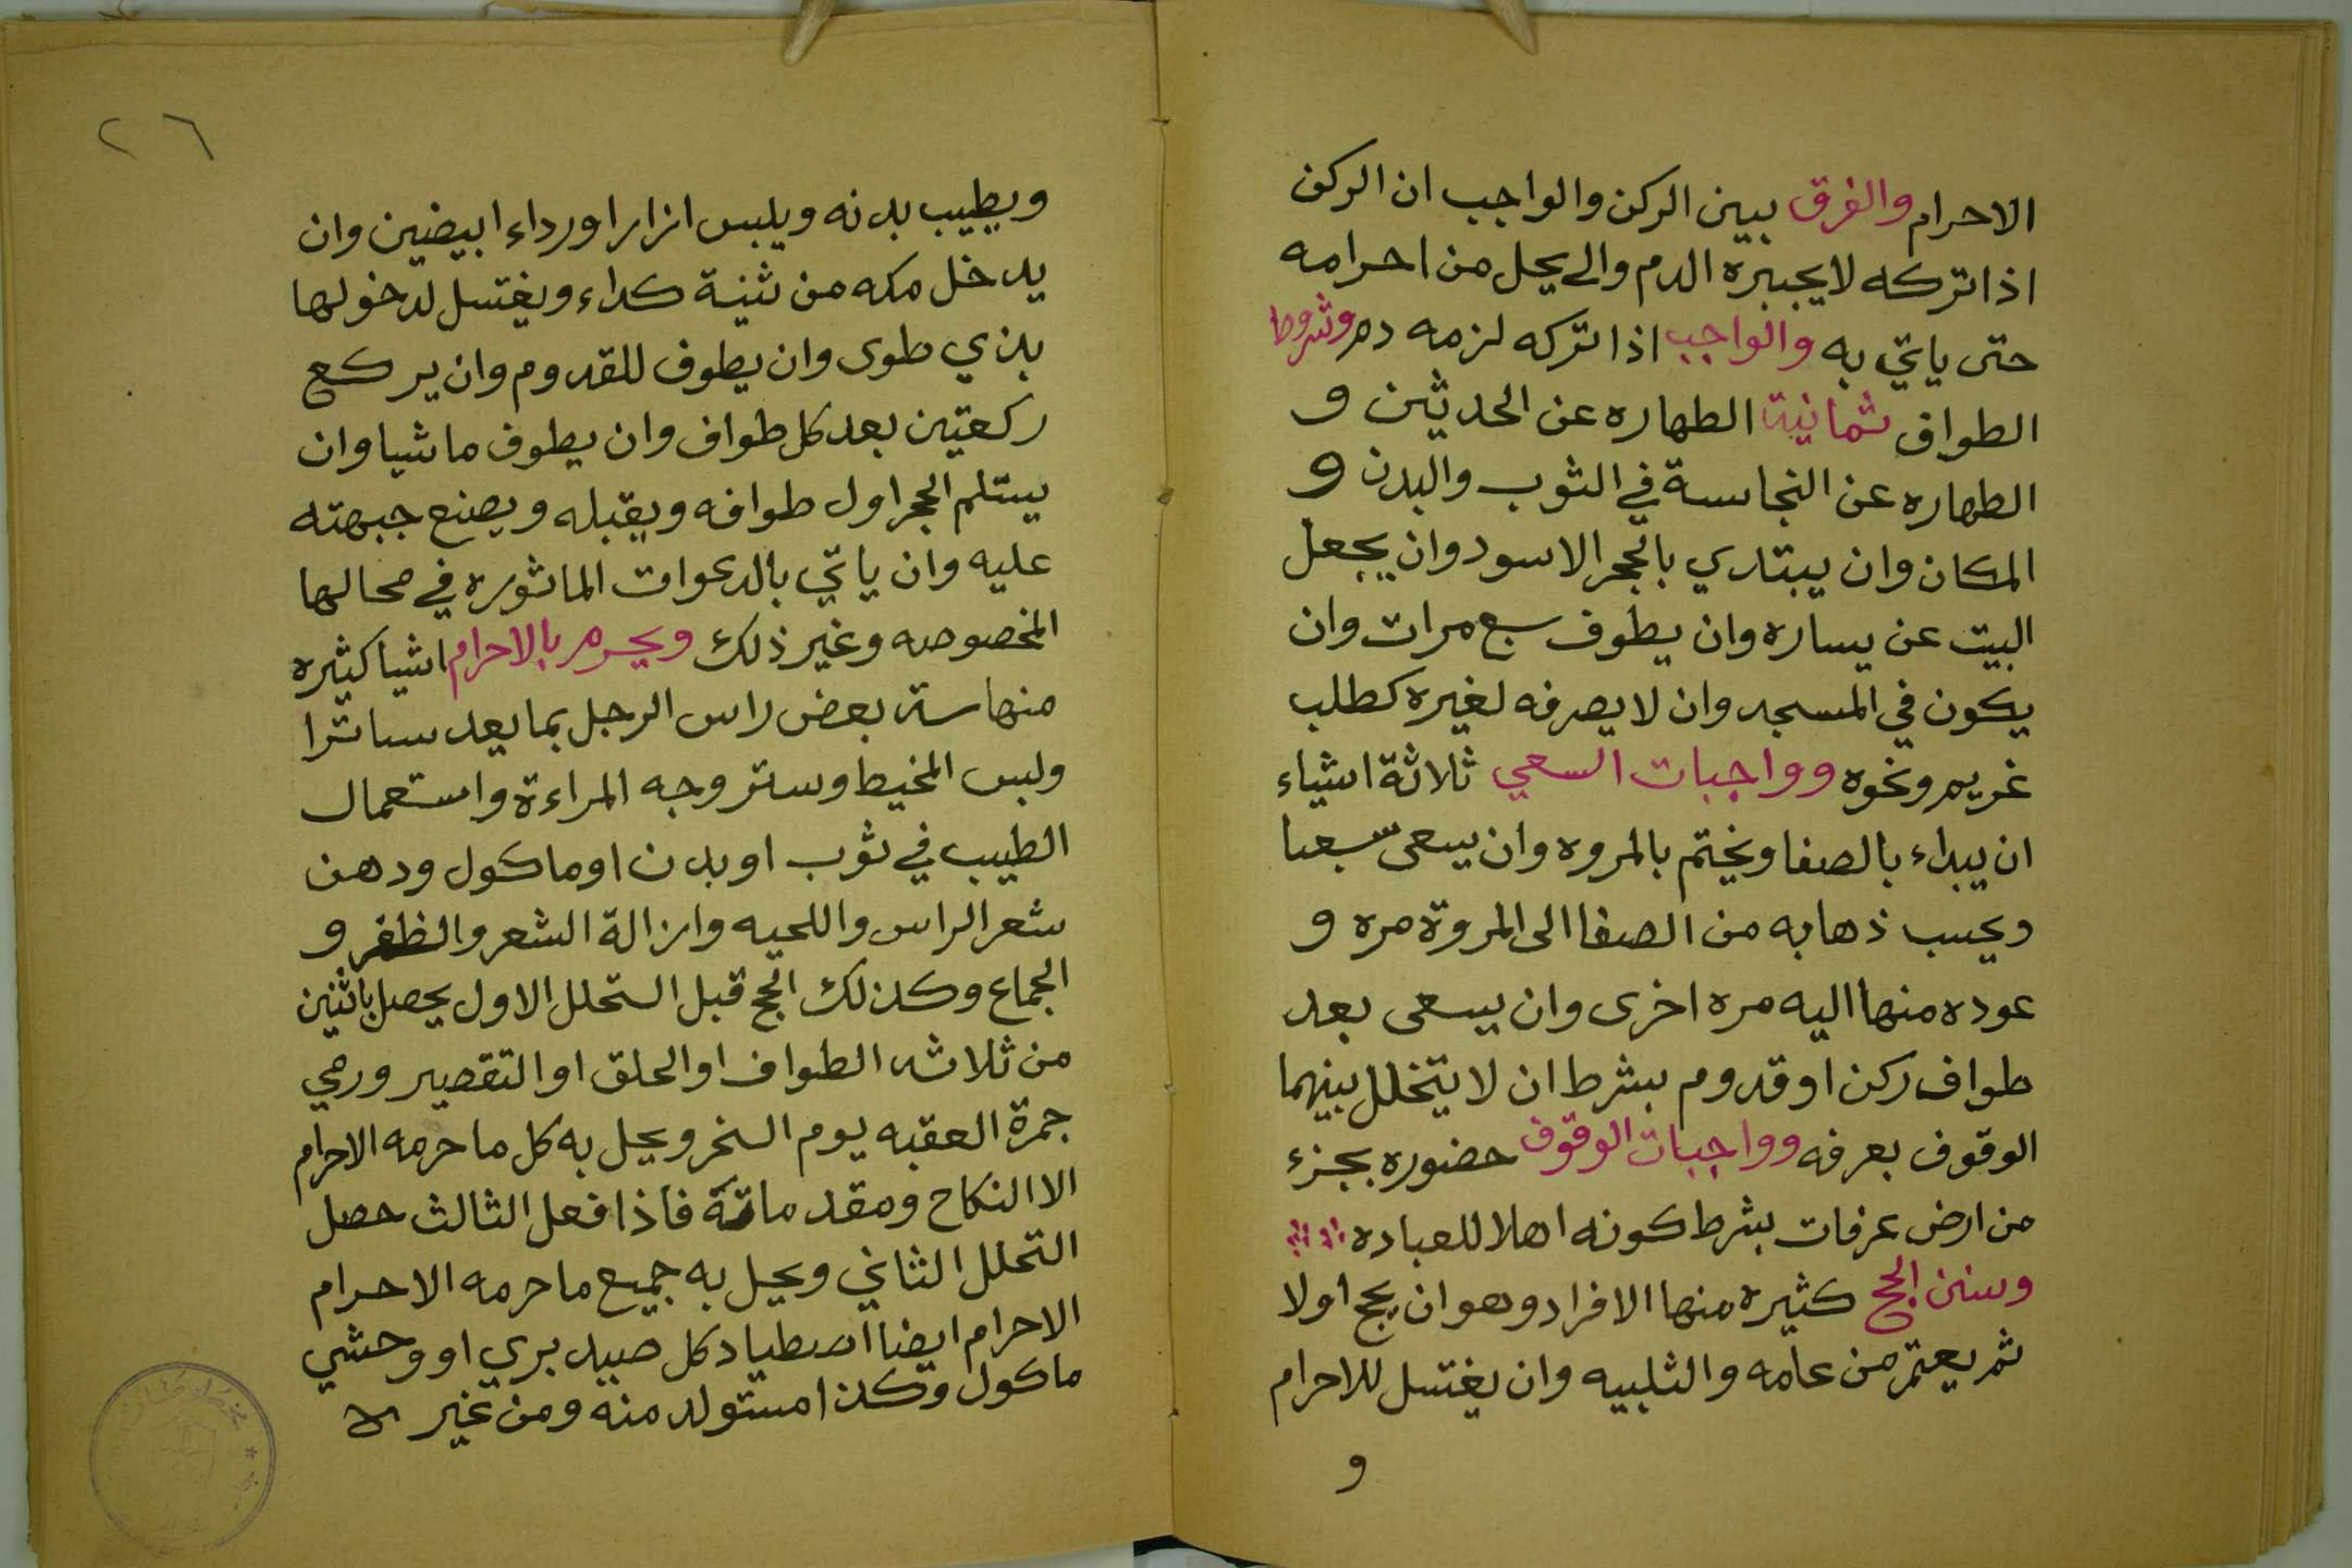 الاحرام والفرق بين الركن والواجب ان الركن
اذا تركه لا يجبره الدم والى يحل من احرامه
حتى ياتي به والواجب اذا تركه لزمه دم وشروط
الطواف ثمانية الطهاره عن الحدثين و
الطهاره عن النجاسة في الثوب والبدن و
المكان وان يبتدي بالحجر الاسود وان يجعل
البيت عن يساره وان يطوف سبع مرات وان
يكون في المسجد وان لا يصرفه لغيره كطلب
غريم ونحوه وواجبات السعي ثلاثة اشياء
ان يبداء بالصفا ويختم بالمروه وان يسعى سبعا
ويحسب ذهابه من الصفا الى المروة مره و
عوده منها اليه مره اخرى وان يسعى بعد
طواف ركن او قدوم بشرط ان لا يتخلل بينهما
الوقوف بعرفه وواجبات الوقوف حضوره بجزء
من ارض عرفات بشرط كونه اهلا للعباده
وسنن الحج كثيره منها الافراد وهو ان يحج اولا
ثم يعتمر من عامه والتلبيه وان يغتسل للاحرام
و
٢٦
ويطيب بدنه ويلبس ازارا ورداء ابيضين وان
يدخل مكه من ثنية كداء ويغتسل لدخولها
بذي طوى وان يطوف للقدوم وان يركع
ركعتين بعد كل طواف وان يطوف ماشيا وان
يستلم الحجر اول طوافه ويقبله ويصنع جبهته
عليه وان ياتي بالدعوات الماثوره في محالها
المخصوصه وغير ذلك ويحرم بالاحرام اشيا كثيره
منها ستر بعض راس الرجل بما يعد ساترا
ولبس المخيط وستر وجه المراءة واستعمال
الطيب في ثوب او بدن او ماكول ودهن
شعر الراس واللحيه وازالة الشعر والظفر و
الجماع وكذلك الحج قبل التحلل الاول يحصل باثنين
من ثلاثه الطواف او الحلق او التقصير ورمي
جمرة العقبه يوم النحر ويحل به كل ما حرمه الاحرام
الا النكاح ومقدماتة فاذا فعل الثالث حصل
التحلل الثاني ويحل به جميع ما حرمه الاحرام
الاحرام ايضا اصطياد كل صيد بري او وحشي
ماكول وكذا مستولد منه ومن غير